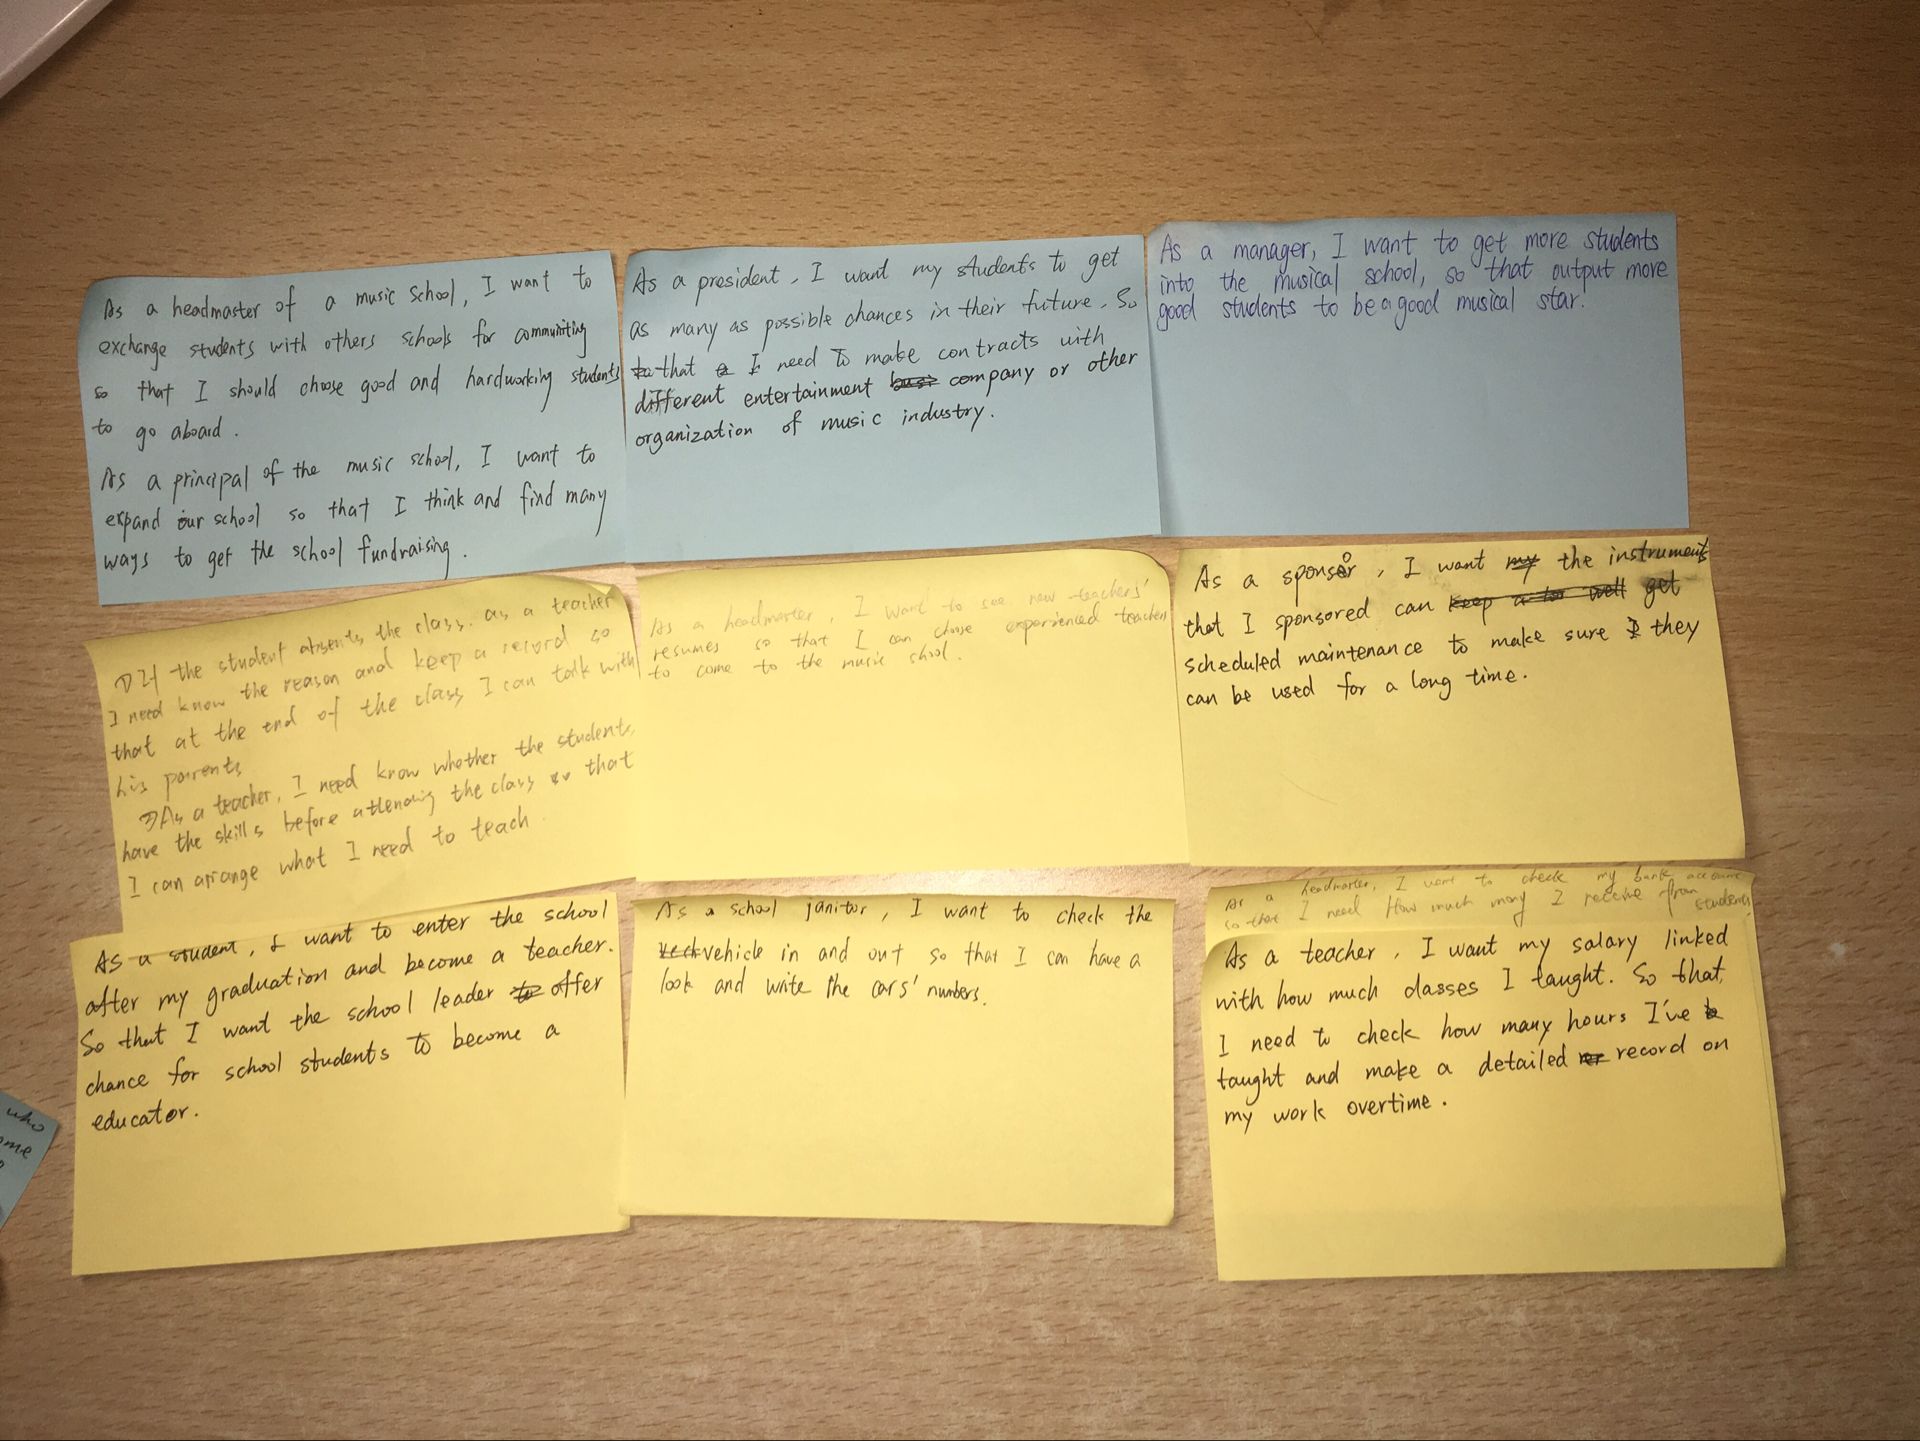 As a headmaster of a music School, I want to
exchange students with others schools for communiting
so that I should choose good and hardworking students
to go aboard.
As a principal of the music school, I want to
expand our school so that I think and find many
ways to get the school fundraising.
As a president, I want my students to get
as many as possible chances in their future, So
that I need to make contracts with
different entertainment company or other
organization of music industry.
As a manager, I want to get more students
into the musical school, so that output more
good students to be a good musical star.
① If the student absents the class. as a teacher
I need know the reason and keep a record so
that at the end of the class I can talk with
his parents
As a teacher, I need know whether the students
have the skills before attending the class so that
I can arrange what I need to teach.
As a headmaster, I want to see new teachers'
resumes so that I can choose experienced teachers
to come to the music shool.
As a sponsor, I want the instruments
that I sponsored can get
scheduled maintenance to make sure they
can be used for a long time.
As a student, I want to enter the school
after my graduation and become a teacher.
So that I want the school leader offer
chance for school students to become a
educator.
As a school janitor, I want to check the
vehicle in and out so that I can have a
look and write the cars' numbers.
As a headmaster, I want to check my bank account
so that I need How much mony I receive from students
As a teacher, I want my salary linked
with how much classes I taught. So that,
I need to check how many hours I've
taught and make a detailed record on
my work overtime.
who
ome